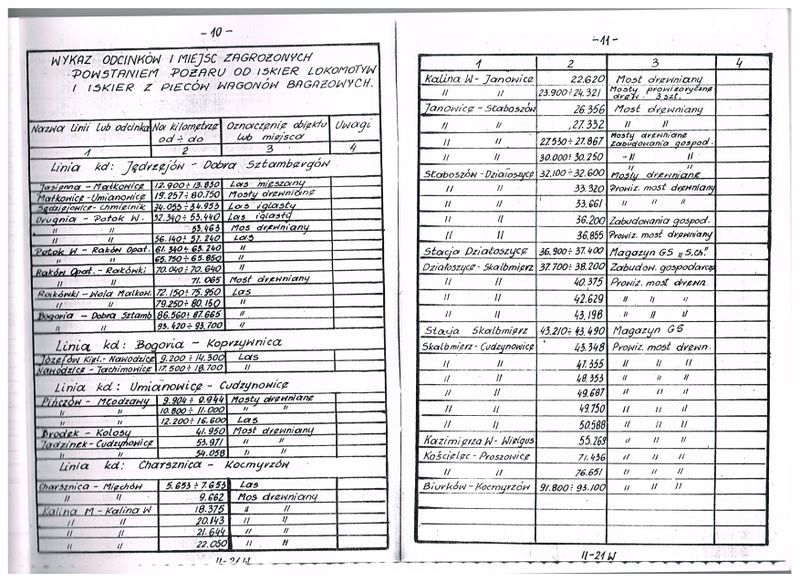 -10-
WYKAZ ODCINKÓW I MIEJSC ZAGROŻONYCH
POWSTANIEM POŻARU OD ISKIER LOKOMOTYW
I ISKIER Z PIECÓW WAGONÓW BAGAŻOWYCH.
Nazwa linii lub odcinka Na kilometrze od ÷ do Oznaczenie obiektu lub miejsca Uwagi
1 2 3 4
Linia kd: Jędrzejów - Dobra Sztambergów
Jasienna - Małkowice 12.900÷13.850 Las mieszany
Małkowice-Umianowice 19.257÷80.750 Mosty drewniane
Sędziejowice-Chmielnik 34.055÷34.953 Las iglasty
Drugnia - Potok W. 52.340÷53.440 Las iglasty
" " 53.463 Mos drewniany
" " 56.140÷57.240 Las
Potok W - Raków Opat. 61.340÷63.240 "
" " 65.750÷65.850 "
Raków Opat. - Rakówki 70.040÷70.640 "
" " 71.065 Most drewniany
Rakówki - Wola Malkow. 72.150÷75.950 Las
" " 79.250÷80.150 "
Bogoria - Dobra Sztamb 86.560÷87.665 "
" " 93.420÷93.700 "
Linia kd: Bogoria - Koprzywnica
Józefów Kipl. - Nawodzice 9.200÷14.300 Las
Nawodzice - Jachimowice 17.500÷18.700 "
Linia kd: Umianowice - Cudzynowice
Pińczów - Młodzawy 9.904÷9.944 Mosty drewniane
" " 10.800÷11.000 " "
" " 12.200÷16.600 Las
Brodek - Kolosy 41.950 Most drewniany
Jadzinek - Cudzynowice 53.971 " "
" " 54.058 " "
Linia kd: Charsznica - Kocmyrzów
Charsznica - Miechów 5.653÷7.653 Las
" " 9.662 Mos drewniany
Kalina M - Kalina W 18.375 " "
" " 20.143 " "
" " 21.644 " "
" " 22.050 " "
-11-
1 2 3 4
Kalina W - Janowice 22.620 Most drewniany
" " 23.900÷24.321 Mosty prowizoryczne drew. 3 szt.
Janowice - Staboszów 26.356 Most drewniany
" " 27.332 " "
" " 27.550÷27.867 Mosty drewniane Zabudowania gospod.
" " 30.000÷30.250 -" "
Staboszów - Działoszyce 32.100÷32.600 Mosty drewniane
" " 33.320 Prowiz. most drewniany
" " 33.661 " "
" " 36.200 Zabudowania gospod.
" " 36.855 Prowiz. most drewniany
Stacja Działoszyce 36.900÷37.400 Magazyn GS „S.ch."
Działoszyce - Skalbmierz 37.700÷38.200 Zabudow. gospodarcze
" " 40.375 Prowiz. most drewn.
" " 42.629 " " "
" " 43.198 " "
Stacja Skalbmierz 43.210÷43.490 Magazyn GS
Skalbmierz - Cudzynowice 43.348 Prowiz. most drewn.
" " 47.355 " " "
" " 48.353 " " "
" " 49.687 " " "
" " 49.750 " " "
" " 50.588 " " "
Kazimierza W - Wielgus 55.269 " " "
Kościelec - Proszowice 71.436 " " "
" " 76.651 " " "
Biurków - Kocmyrzów 91.800÷93.100 " " "
11-21W